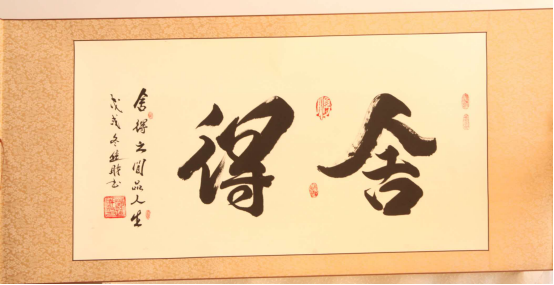 舍得
舍得之间品人生
戊戌冬